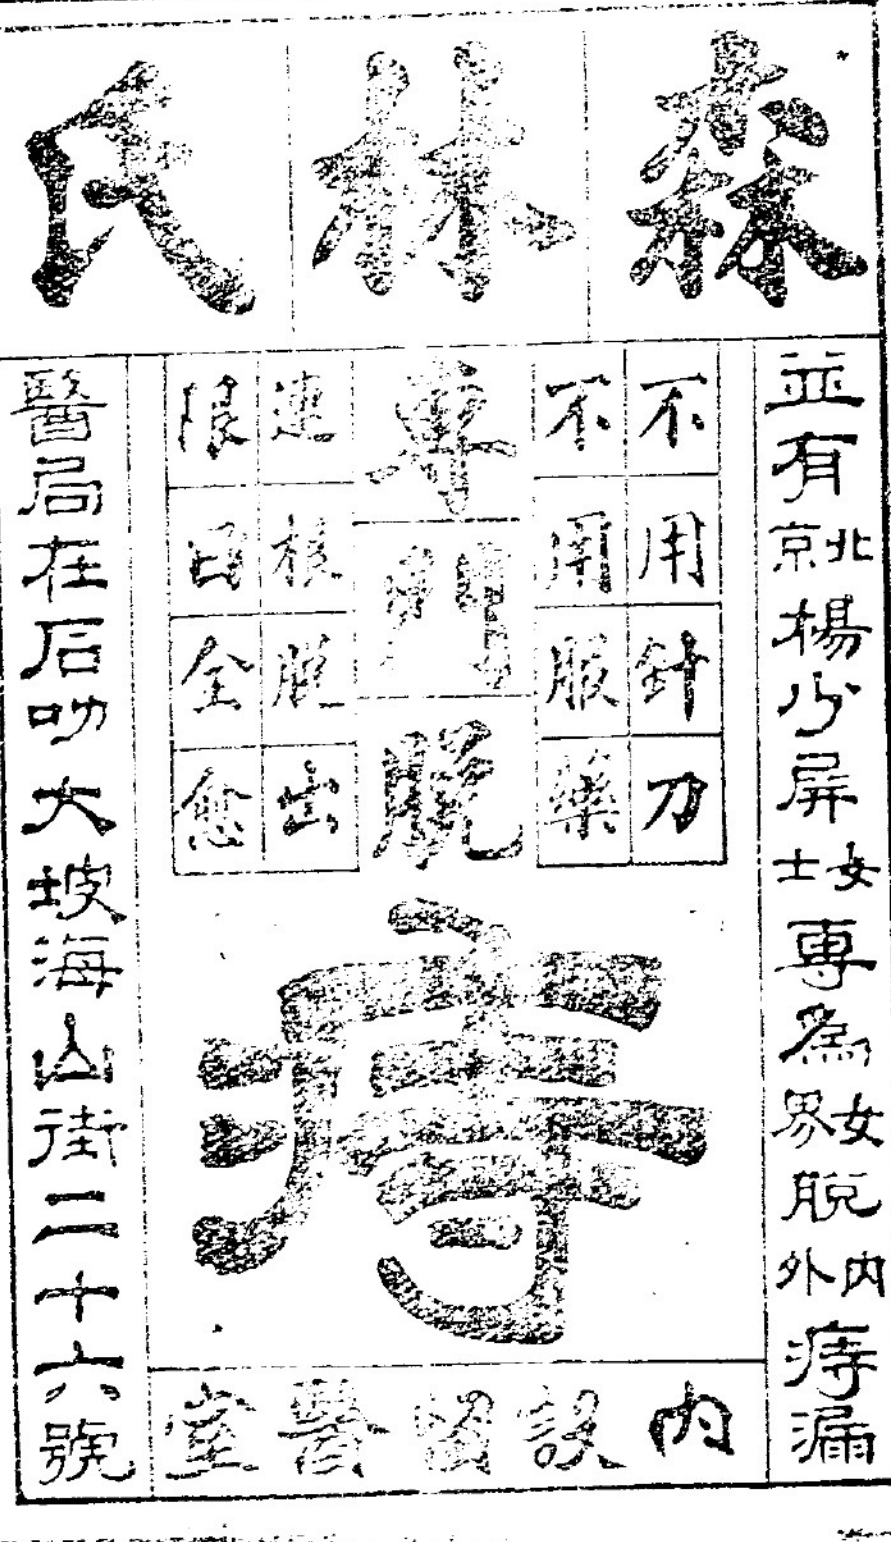 森林氏
並有北京楊少屏女士專為女界脫內外痔漏
不用針刀
不用服藥
專門脫痔
連根脫出
限日全愈
內設留醫室
醫局在石叻大坡海山街二十六號